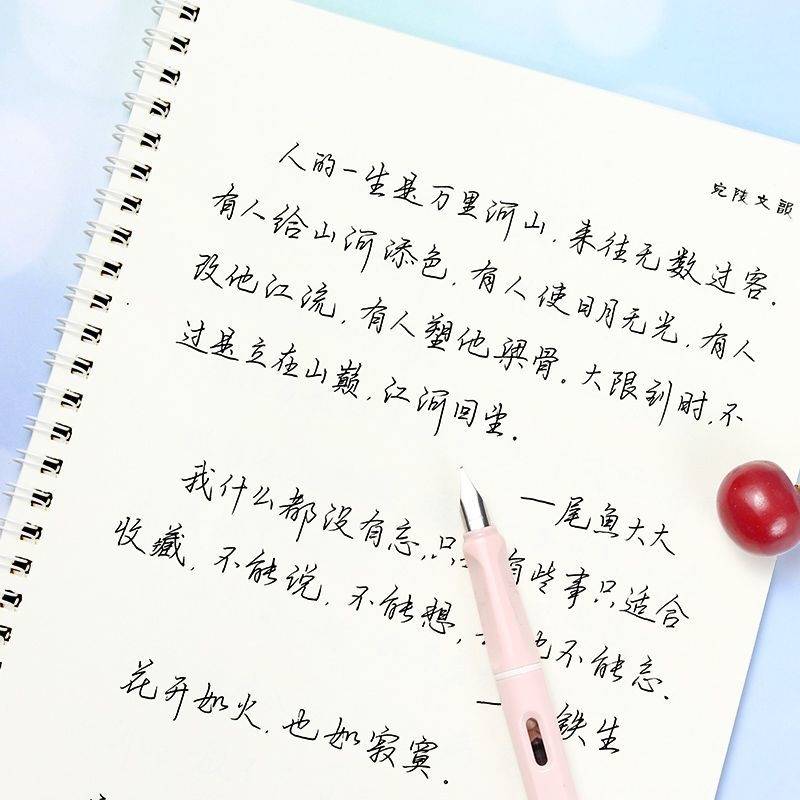 宛陵文韵
人的一生是万里河山，来往无数过客。
有人给山河添色，有人使日月无光，有人
改他江流，有人塑他梁骨。大限到时，不
过是立在山巅，江河回望。
一尾鱼大大
我什么都没有忘，只 有些事只适合
收藏，不能说，不能想， 也不能忘。
铁生
花开如火，也如寂寞。